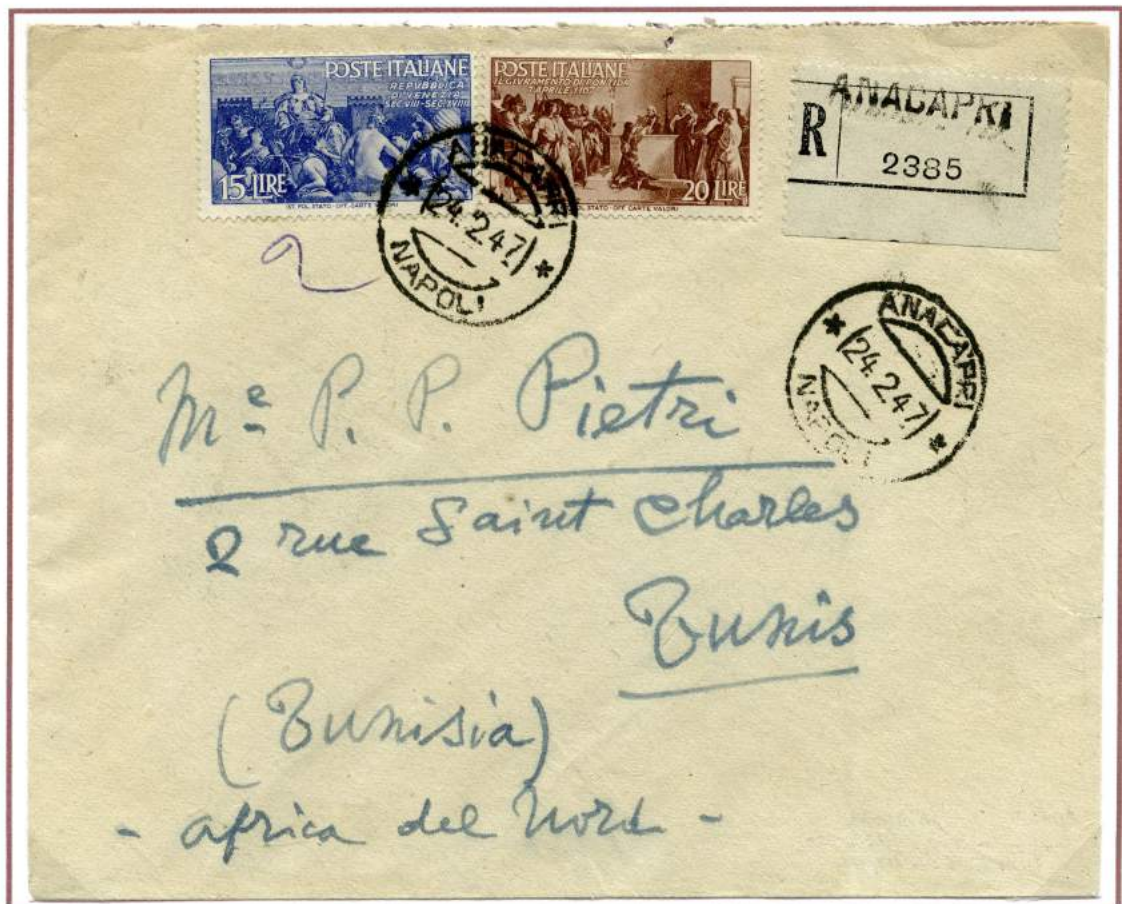 POSTE ITALIANE
REPUBBLICA
DI VENEZIA
SEC.VIII-SEC.XVIII
15 LIRE
IST. POL. STATO - OFF. CARTE VALORI
POSTE ITALIANE
IL GIURAMENTO DI PONTIDA
7 APRILE 1167
20 LIRE
POL. STATO - OFF. CARTE VALORI
ANACAPRI
R
2385
ANACAPRI
24.2.47
NAPOLI
ANACAPRI
24.2.47
NAPOLI
Me P. P. Pietri
2 rue Saint Charles
Tunis
(Tunisia)
- africa del Nord -